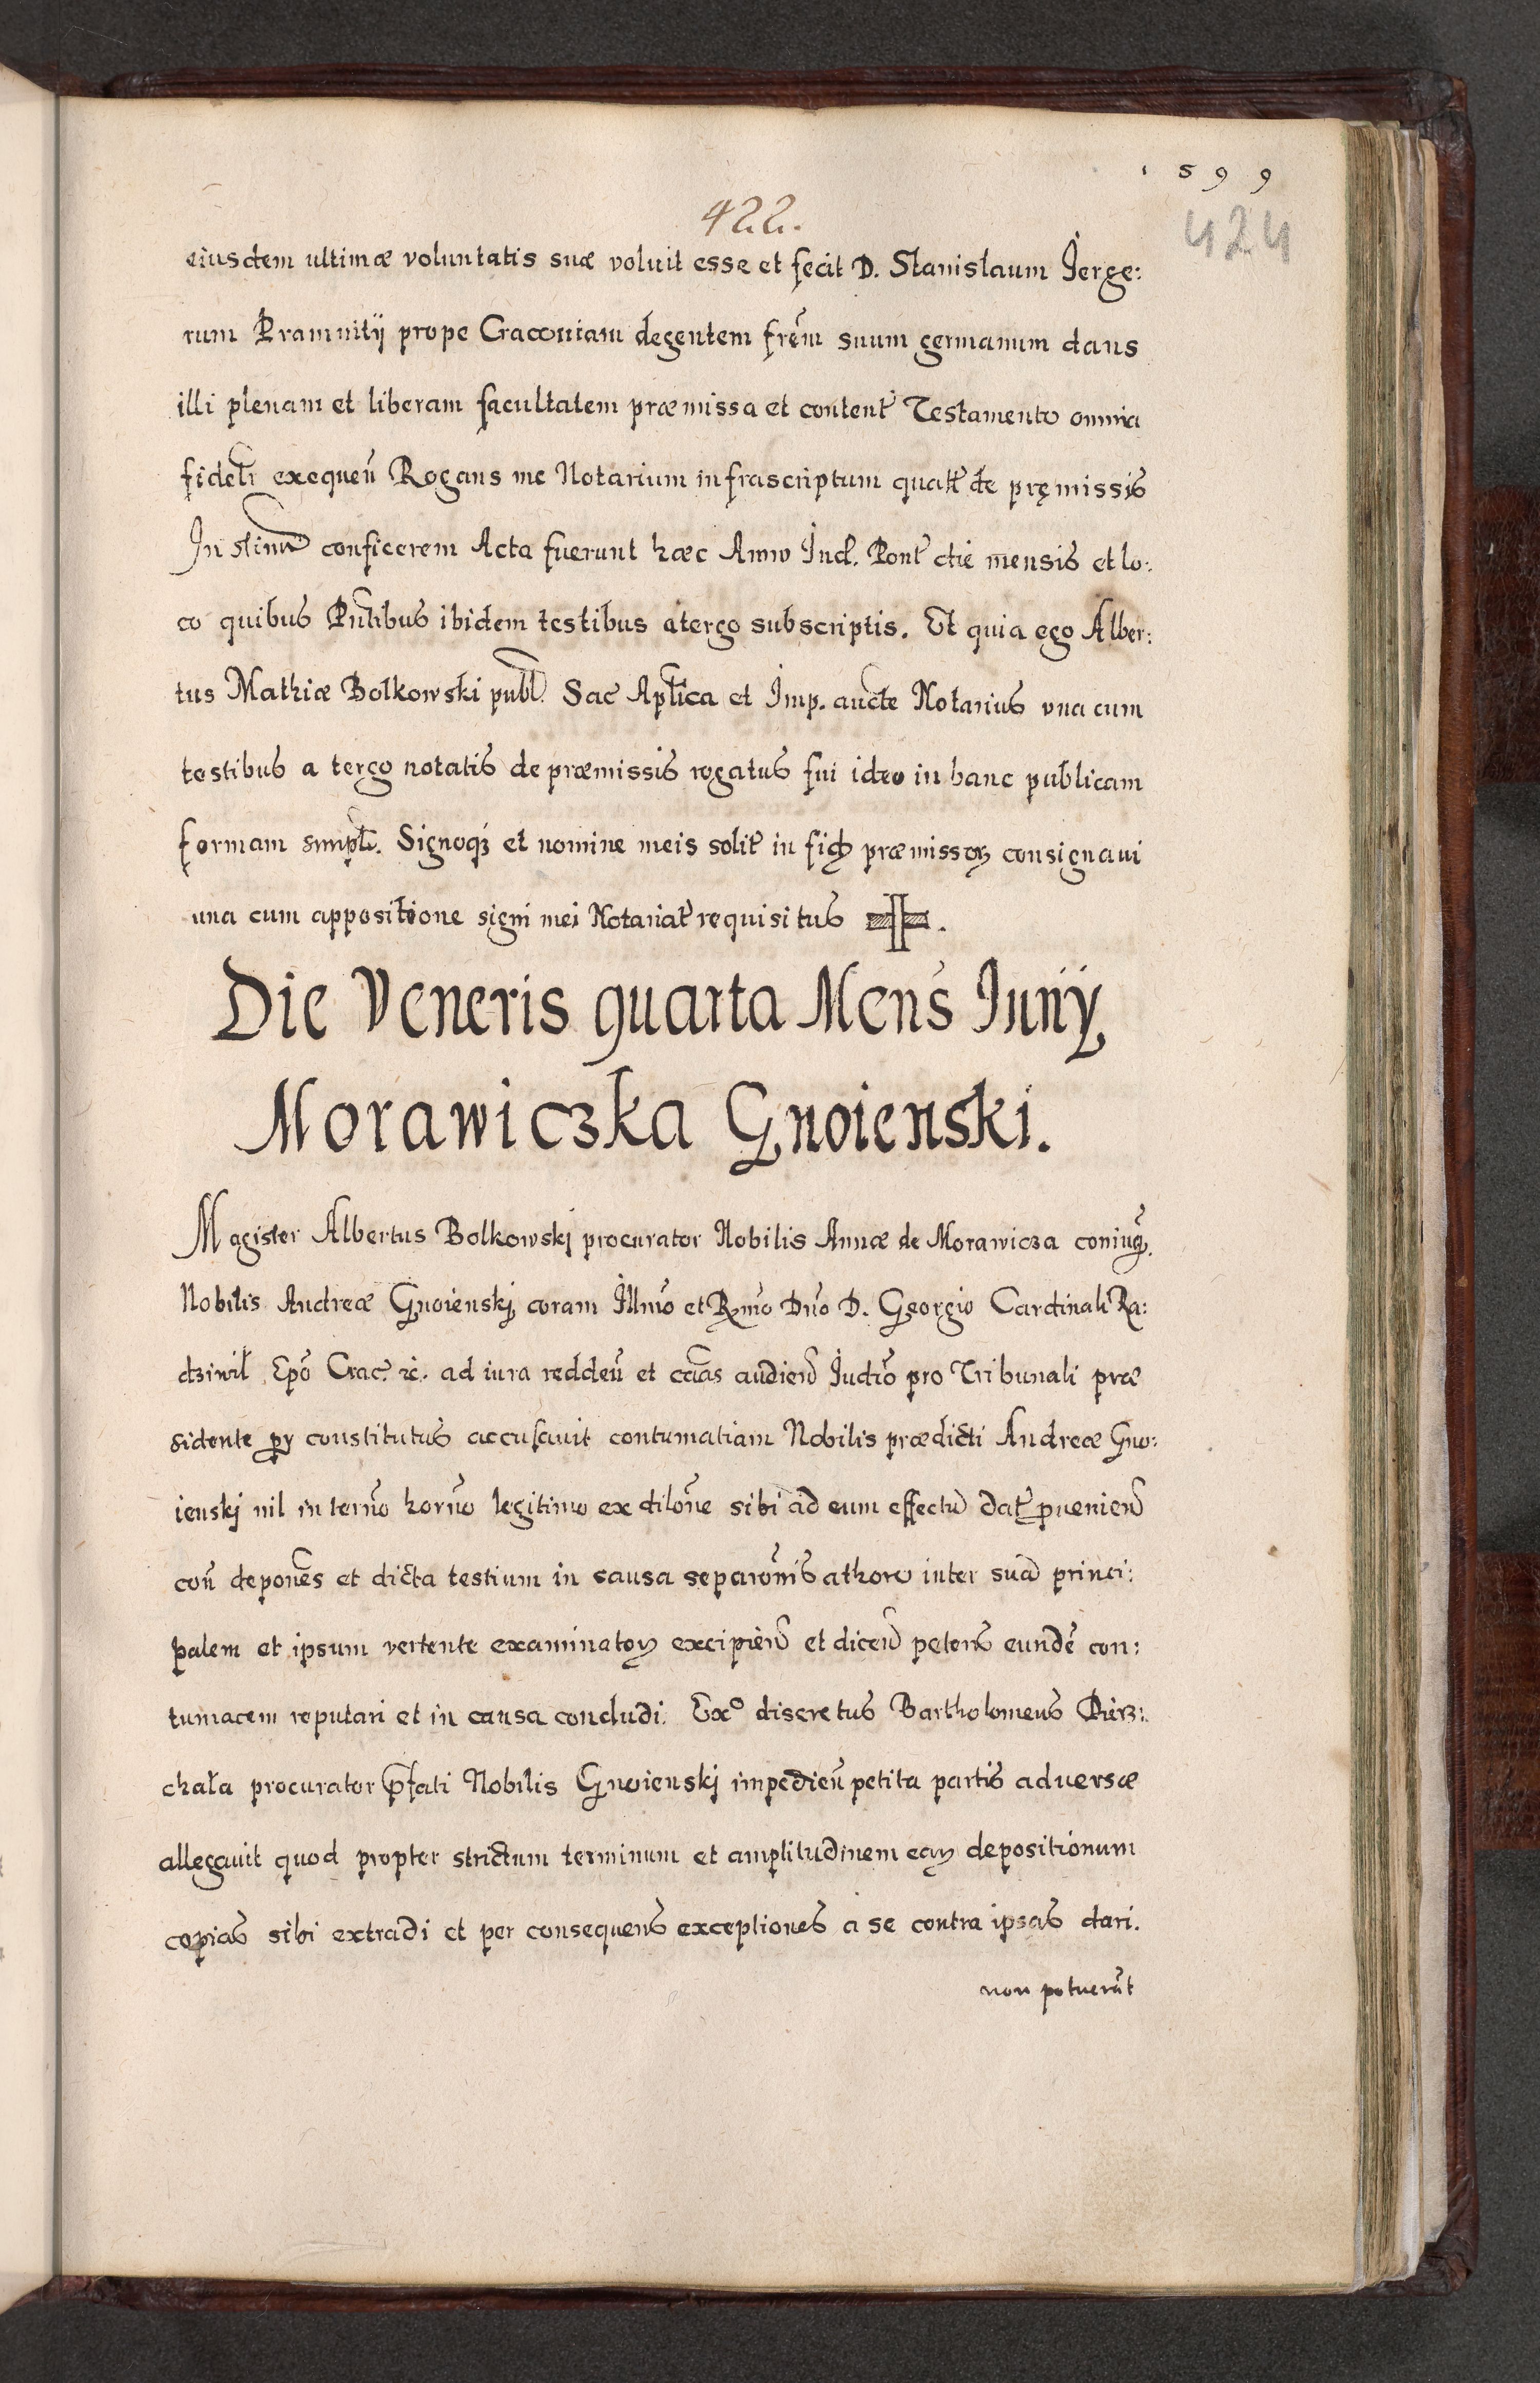 1599
422.
424
eiusdem ultimæ voluntatis suæ voluit esse et fecit D. Stanislaum Jerge:
rum Pramnitij prope Cracoviam degentem frẽm suum germanum dans
illi plenam et liberam facultatem præmissa et content̃ Testamento omnia
fidelr̃ exequeñ Rogans me Notarium infrascriptum quatt̃ de pręmissis
Instru͂m conficerem Acta fuerunt hæc Anno Ind. Pont̃ die mensis et lo:
co quibus Pñtibus ibidem testibus a tergo subscriptis. Et quia ego Alber:
tus Mathiæ Bolkowski publ. Sac̃ Aplica et Imp. aucte Notarius vna cum
testibus a tergo notatis de præmissis rogatus fui ideo in hanc publicam
formam scripsi. Signoqȝ et nomine meis solit̃ in fidẽ præmissoꝝ consignavi
una cum appositione signi mei Notariat̃ requisitus .
Die Veneris quarta Mens̃ Junÿ
Morawiczka Gnoienski.
Magister Albertus Bolkowskj procurator Nobilis Annæ de Morawicza coniug̃.
Nobilis Andreæ Gnoienskj coram Illm̃o et Rm̃o Dn̄o D. Georgio Cardinali Ra:
dziwił Ep̃o Crac̃ ꝛc. ad iura reddeñ et cãas audieñ Judꝛ̃o pro Tribunali præ
sidente ꝑꝛ constitutus accusavit contumatiam Nobilis prædicti Andreæ Gno:
ienskj nil in terño horño legitimo ex dilõne sibi ad eum effectũ dat̃ ꝓuenieñ
coñ deponẽs et dicta testium in causa separõnis athoro inter suã princi:
palem et ipsum vertente examinatoꝝ excipieñ et diceñ petens eundẽ con:
tumacem reputari et in causa concludi. Exº discretus Bartholomeus Pierz:
chała procurator p̃fati Nobilis Gnoienskj impedieñ petita partis adversæ
allegavit quod propter strictum terminum et amplitudinem eaꝝ depositionum
copias sibi extradi et per consequens exceptiones a se contra ipsas dari.
non potuerũt